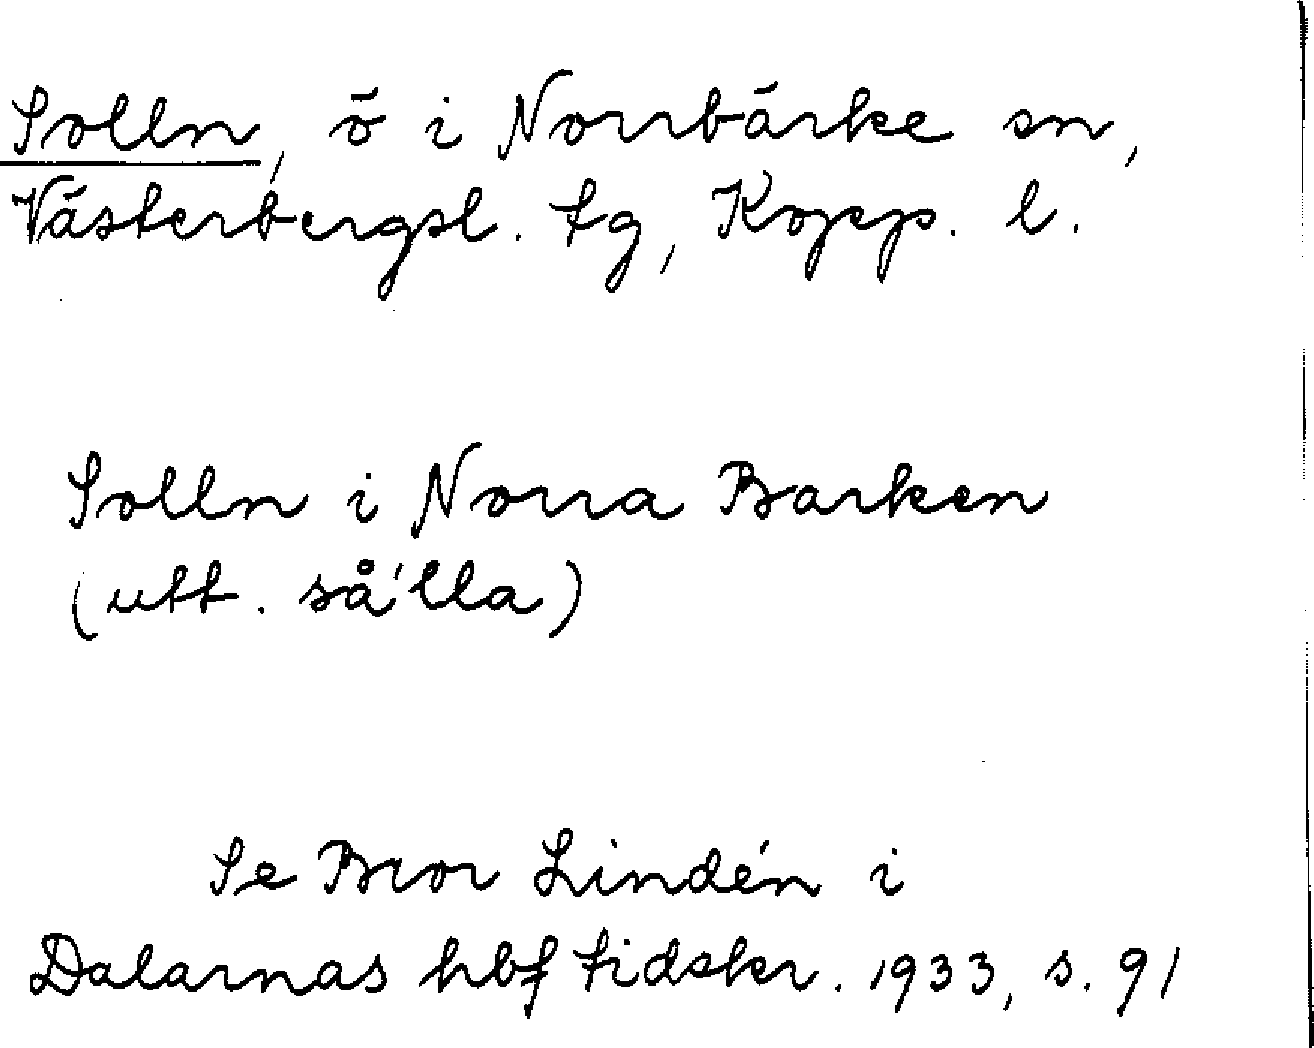 Solln, ö i Norrbärke sn,
Västerbergsl. tg, Kopp. l.
Solln i Norra Barken
(utt. så´lla)
Se Bror Lindén i
Dalarnas hbf tidskr. 1933, s. 91